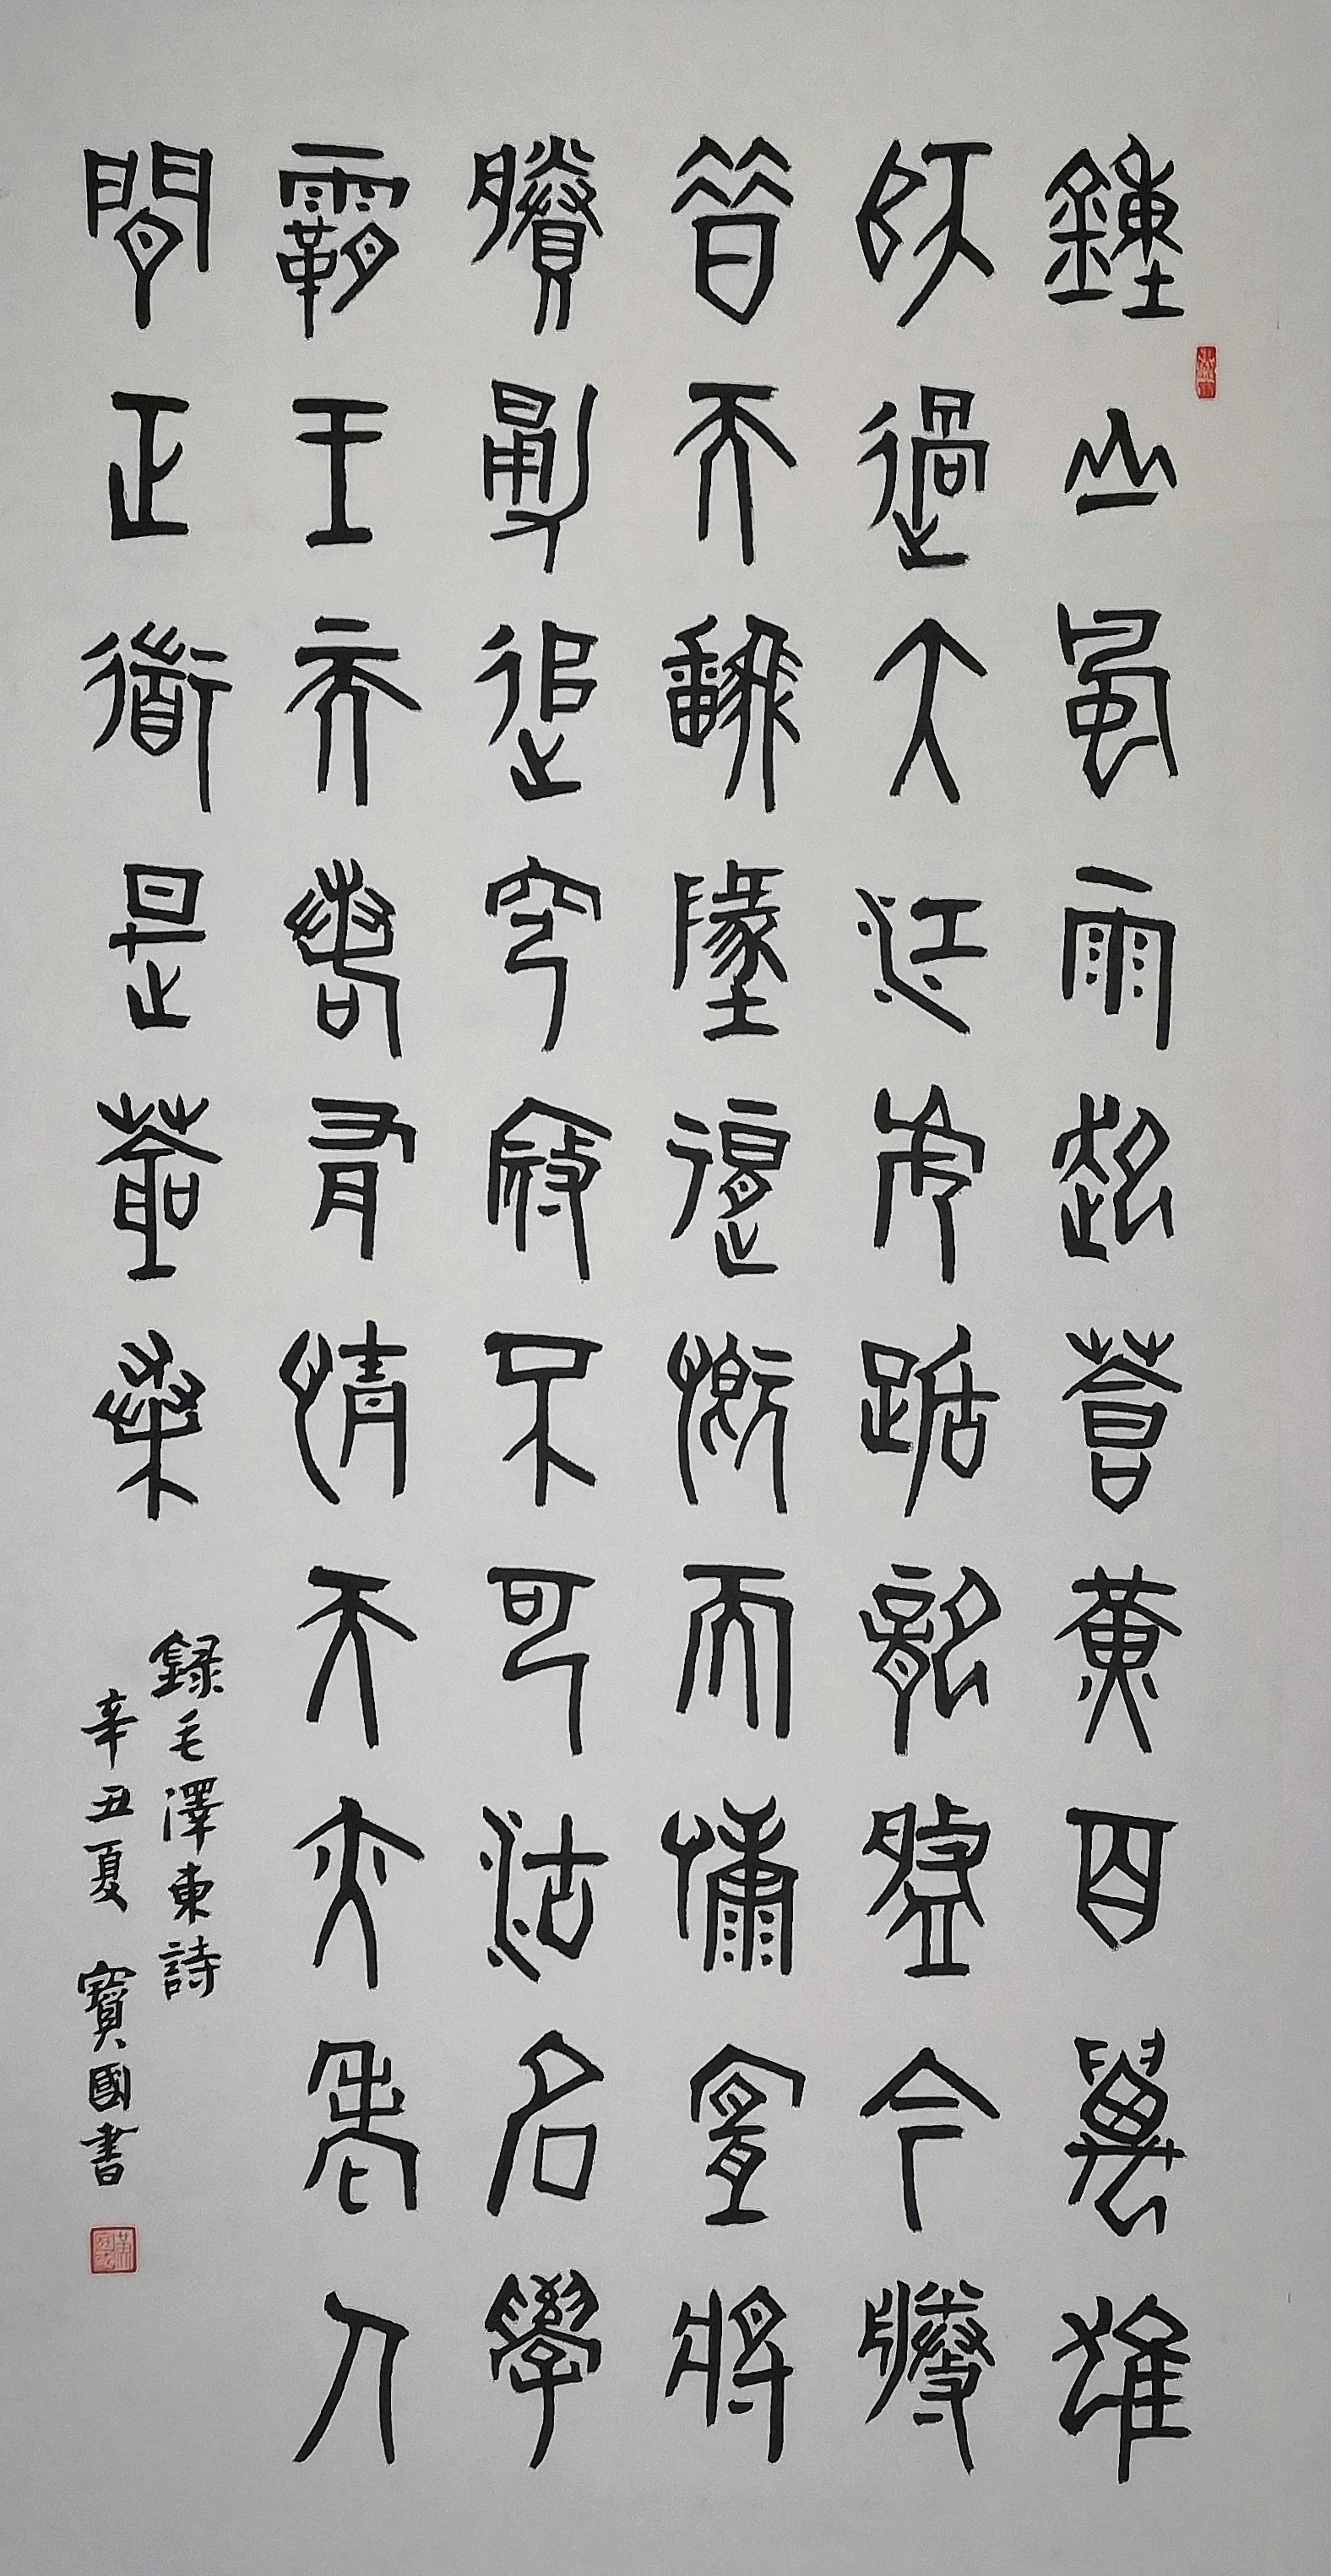 鍾山風雨起蒼黃百萬雄
師過大江虎踞龍盤今勝
昔天翻地覆慨而慷宜將
賸勇追窮寇不可沽名學
霸王天若有情天亦老人
間正道是蒼桑
録毛澤東詩
辛丑夏 寶國書